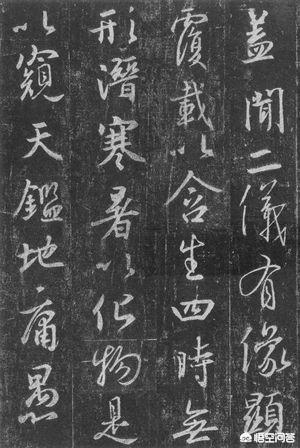 盖聞二儀有像顯
覆載以含生四時無
形潛寒暑以化物是
以窺天鑑地庸愚
悟空问答